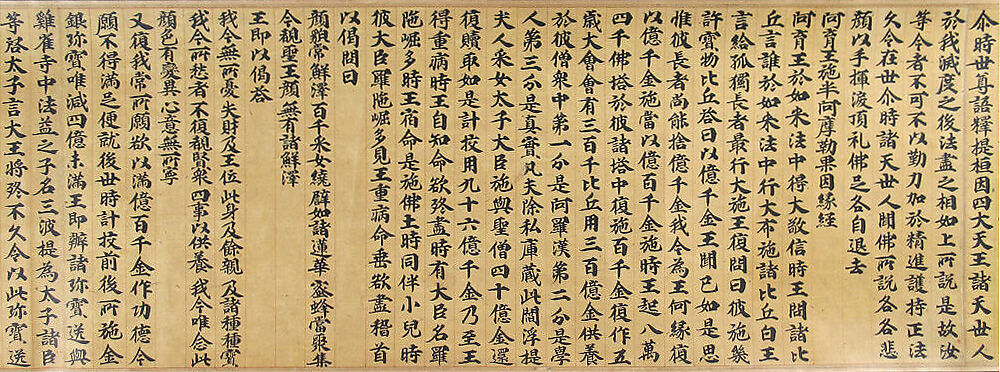 尒時世尊語釋提桓因四天大王諸天世人
於我滅度之後法盡之相如上所說是故汝
等今者不可不以勤力加於精進護持正法
久令在世尒時諸天世人聞佛所說各各悲
顏以手揮淚頂礼佛足各自退去
阿育王施半阿摩勒果因緣經
阿育王於如来法中得大敬信時王問諸比
丘言誰於如来法中行大布施諸比丘白王
言給孤獨長者最行大施王復問曰彼施幾
許寶物比丘荅曰以億千金王聞已如是思
惟彼長者尚能捨億千金我今為王何緣復
以億千金施當以億百千金施時王起八萬
四千佛塔於彼諸塔中復施百千金復作五
歲大會會有三百千比丘用三百億金供養
於彼僧衆中第一分是阿羅漢第二分是學
人第三分是真實凡夫除私庫藏此閻浮提
夫人采女太子大臣施與聖僧四十億金還
復贖取如是計挍用九十六億千金乃至王
得重病時王自知命欲終盡時有大臣名羅
陁崛多時王宿命是施佛土時同伴小兒時
彼大臣羅陁崛多見王重病命垂欲盡稽首
以偈問曰
顏貌常鮮澤 百千采女繞 辟如諸蓮華 蜜蜂當聚集
今覩聖王顏 無有諸鮮澤
王即以偈荅
我今無所憂 失財及王位 此身及餘親 及諸種種寶
我今所愁者 不復覩賢衆 四事以供養 我今唯念此
顏色有變異 心意無所寧
又復我常所願欲以滿億百千金作功德今
願不得滿足便就後世時計挍前後所施金
銀珎寶唯減四億未滿王即辦諸珎寶送與
雞雀寺中法益之子名三波提為太子諸臣
等啓太子言大王將終不久今以此珎寶送